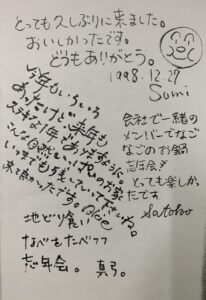 とっても久しぶりに来ました。
おいしかったです。
どうもありがとう。
1998.12.27
Sumi
今年もいろいろ
あったけど、来年も
ステキな1年でありますように。
こんな自然いっぱいの方家
いつまでも残していって下さいね。
来て良かったです。
会社で一緒の
メンバーでなご
なごのお鍋
忘年会!
とっても楽しか
ったです
Satoko
地どり食い
なべもたべつつ
忘年会。 真弓。